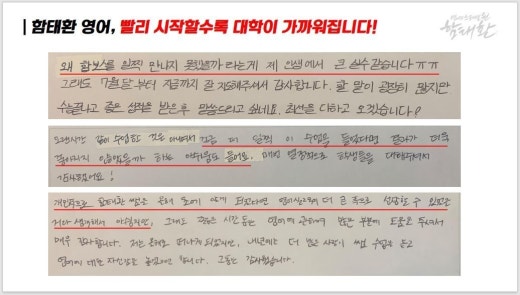 함태환 영어, 빨리 시작할수록 대학이 가까워집니다!
함태환
왜 함보스를 일찍 만나지 못했을까 라는게 제 인생에서 큰 실수같습니다 ㅠㅠ
그래도 7월달 부터 지금까지 잘 지도해주셔서 감사합니다. 할 말이 굉장히 많지만
수능끝나고 좋은 성적을 받은후 말씀드리고 싶네요. 최선을 다하고 오겠습니다!
오랜시간 같이 수업한 것은 아니지만 조금 더 일찍 이 수업을 들었다면 결과가 더욱
좋아지지 않았을까 하는 아쉬움도 들어요. 매번 열정적으로 학생들을 대해주셔서
감사했어요!
개인적으로 함태환 쌤은
생각해서 아쉽지만, 그래도 짧은 시간 동안 영어에 관하여 많은 부분에 도움을 주셔서
매우 감사합니다. 저는 올해로 떠나게 되었지만, 내년에는 더 많은 사람이 쌤 수업을 듣고
영어에 대한 자신감을 높였으면 합니다. 그동안 감사했습니다.